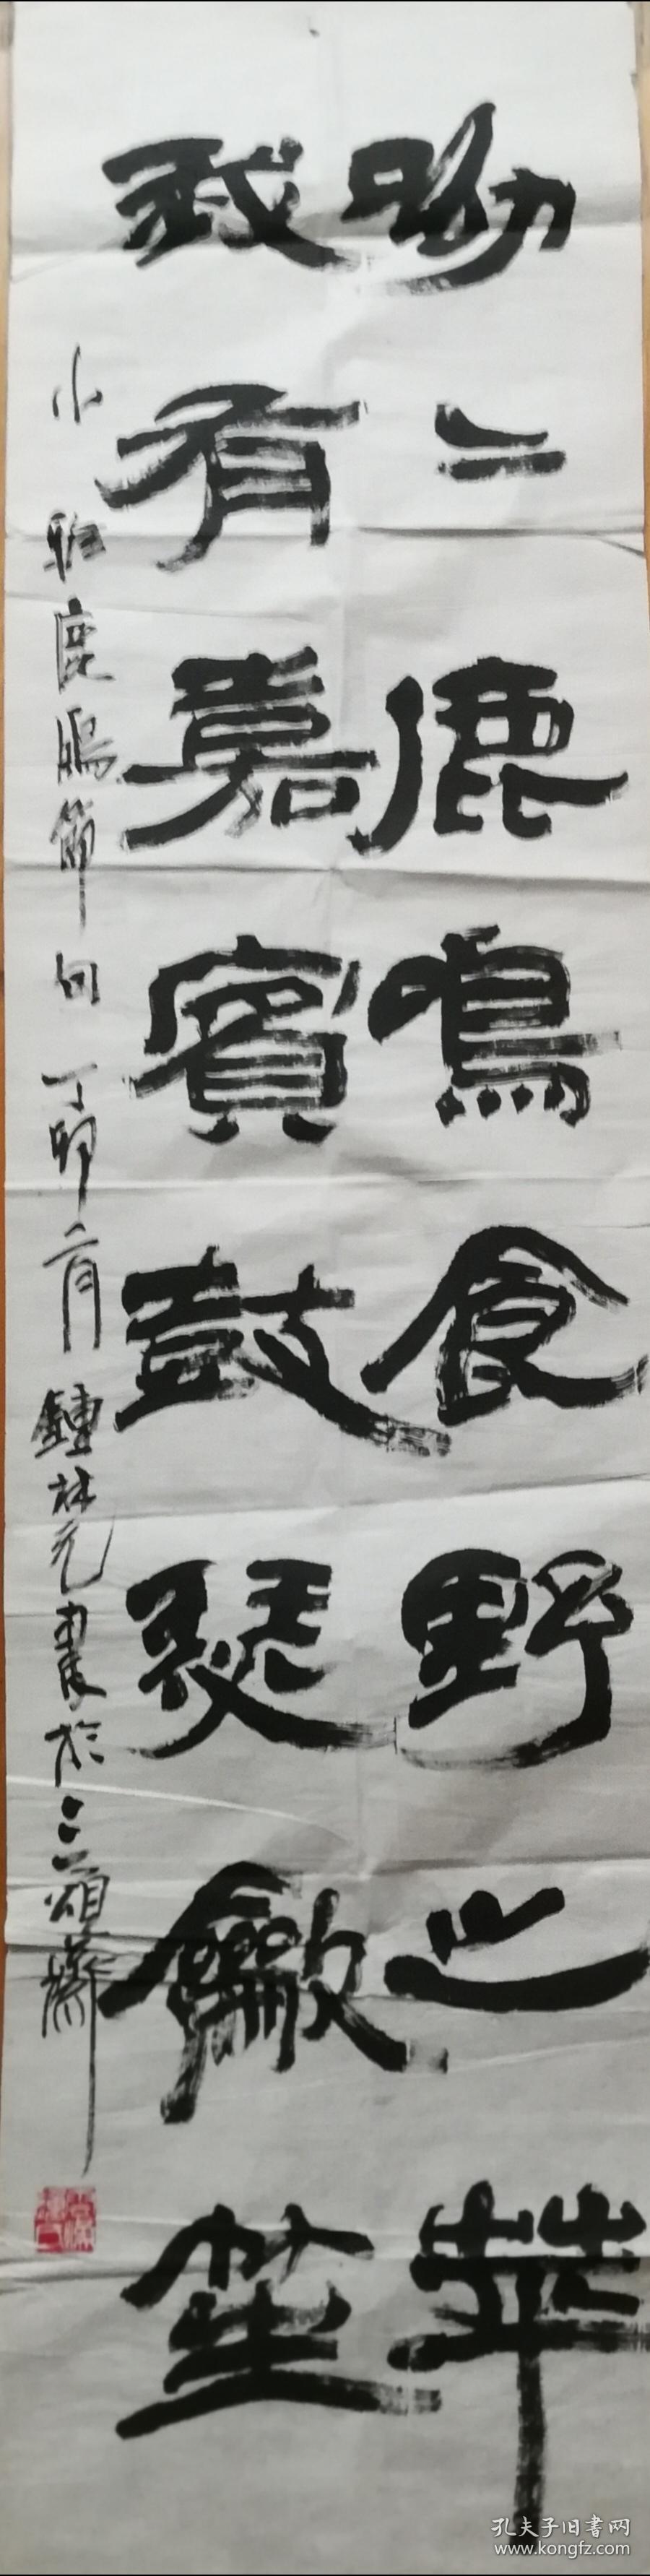 呦〻鹿鳴食野之苹
我有嘉賓鼓瑟龡笙
小雅鹿鳴節句丁卯二月鍾林元書於三頌齋
孔夫子旧書网
www.kongfz.com